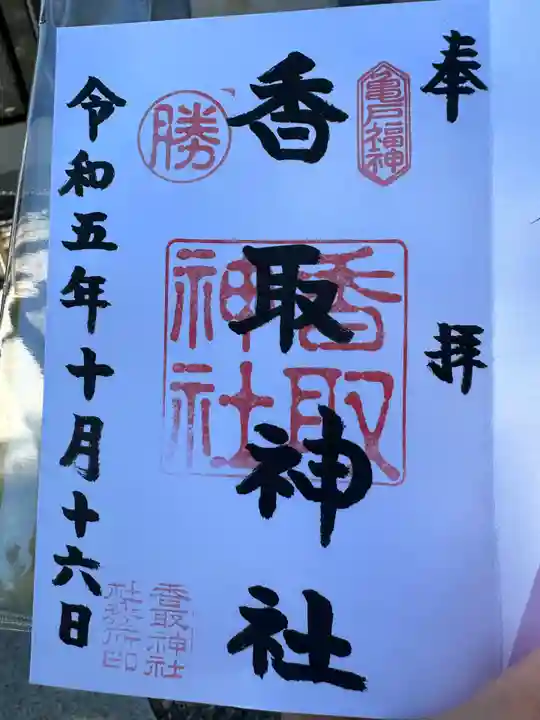 奉拝
亀戸福神
香取神社
香取神社
勝
令和五年十月十六日
香取神社社務所印